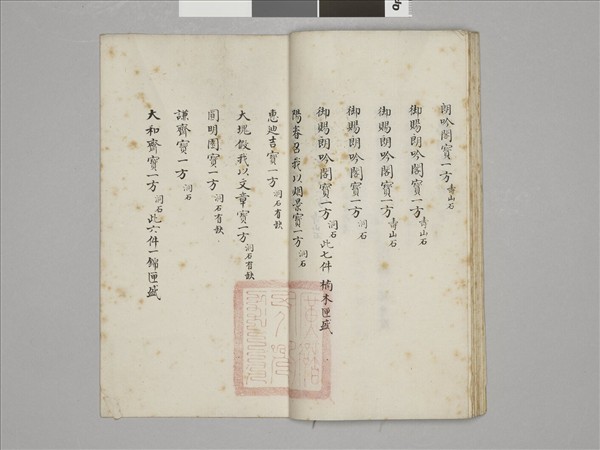 朗吟閣寶一方 壽山石
御賜朗吟閣寶一方 壽山石
御賜朗吟閣寶一方 壽山石
御賜朗吟閣寶一方 洞石
御賜朗吟閣寶一方 洞石 此七件 楠木匣盛
陽春召我以烟景寶一方 洞石
惠迪吉寶一方 洞石有缺
大塊假我以文章寶一方 洞石有缺
圓明園寶一方 洞石有缺
謙齋寶一方 洞石
大和齋寶一方 洞石 此六件一錦匣盛